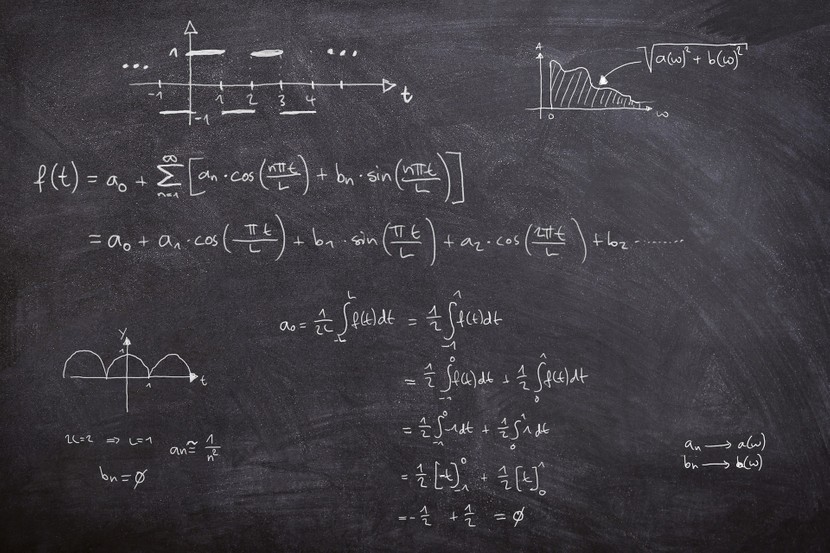 1
...
...
-1 1 2 3 4 t
-1
A
√(a(ω)² + b(ω)²)
0 ω
f(t) = a₀ + ∑ₙ₌₁^∞ [aₙ·cos(nπt/L) + bₙ·sin(nπt/L)]
= a₀ + a₁·cos(πt/L) + b₁·sin(πt/L) + a₂·cos(2πt/L) + b₂........
a₀ = 1/2L ∫₋L^L f(t)dt = 1/2 ∫₋₁^1 f(t)dt
= 1/2 ∫₋₁^0 f(t)dt + 1/2 ∫₀^1 f(t)dt
= 1/2 ∫₋₁^0 -1dt + 1/2 ∫₀^1 1dt
= 1/2 [-t]₋₁^0 + 1/2 [t]₀^1
= -1/2 + 1/2 = ∅
y
1
1 t
2L=2 ⇒ L=1
aₙ ≅ 1/n²
bₙ = ∅
aₙ → a(ω)
bₙ → b(ω)